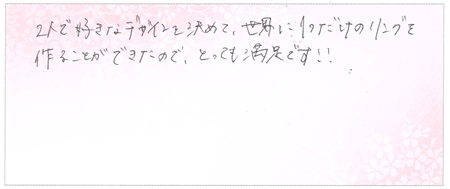 2人で好きなデザインを決めて、世界に1つだけのリングを
作ることができたので、とっても満足です!!